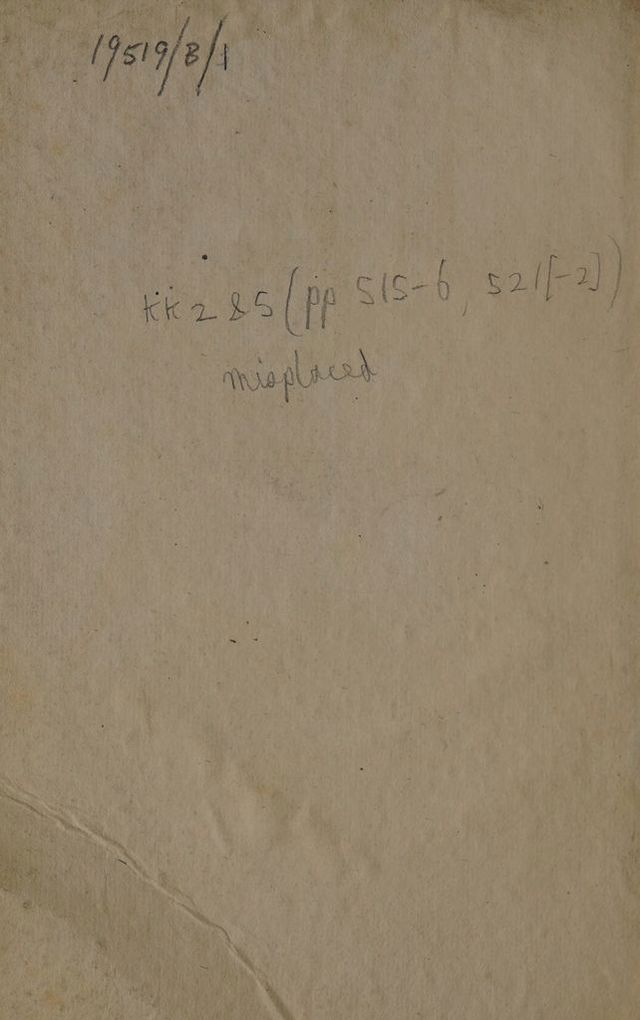 19519/B/1
KK 2 & 5 (pp 515-6, 521[-2])
misplaced